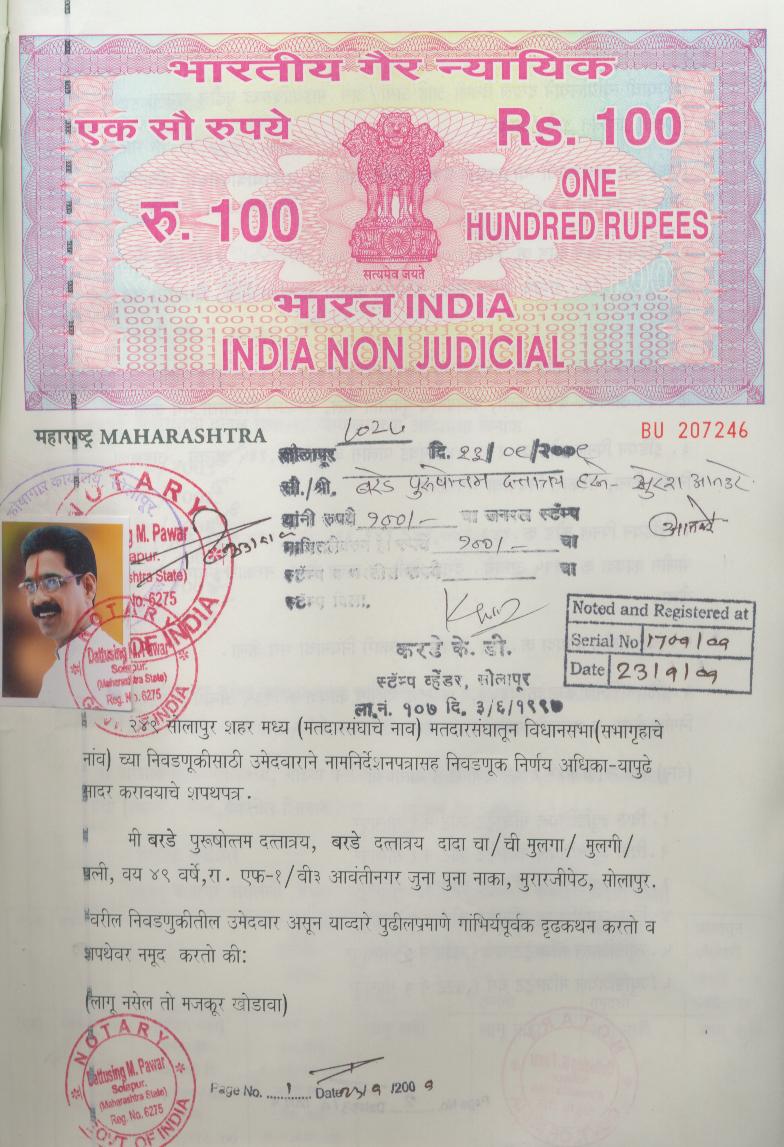 भारतीय गैर न्यायिक
एक सौ रुपये
Rs. 100
रु. 100
ONE
HUNDRED RUPEES
सत्यमेव जयते
भारत INDIA
INDIA NON JUDICIAL
महाराष्ट्र MAHARASHTRA
BU 207246
सोलापूर दि. २३/०९/२००९
सौ./श्री. बरडे पुरुषोत्तम दत्तात्रय
यांनी रुपये १००/- चा जनरल स्टॅम्प
१००/- चा
चा
स्टॅम्प दिला.
करडे के. डी.
स्टॅम्प व्हेंडर, सोलापूर
ला.नं. १०७ दि. ३/६/१९९७
Noted and Registered at
Serial No 1709/09
Date 23/9/09
NOTARY
M. Pawar
No. 6275
NOTARY
Dattusing M. Pawar
Solapur.
(Maharashtra State)
Reg. No. 6275
GOVT. OF INDIA
२४९ सोलापूर शहर मध्य (मतदारसंघाचे नाव) मतदारसंघातून विधानसभा(सभागृहाचे
नांव) च्या निवडणूकीसाठी उमेदवाराने नामनिर्देशनपत्रासह निवडणूक निर्णय अधिका-यापुढे
सादर करावयाचे शपथपत्र.
मी बरडे पुरूषोत्तम दत्तात्रय, बरडे दत्तात्रय दादा चा/ची मुलगा/ मुलगी/
पत्नी, वय ४९ वर्षे,रा. एफ-१/बी३ आवंतीनगर जुना पुना नाका, मुरारजीपेठ, सोलापूर.
वरील निवडणुकीतील उमेदवार असून याव्दारे पुढीलप्रमाणे गांभिर्यपूर्वक दृढकथन करतो व
शपथेवर नमूद करतो की:
(लागू नसेल तो मजकूर खोडावा)
NOTARY
Dattusing M. Pawar
Solapur.
(Maharashtra State)
Reg. No. 6275
GOVT. OF INDIA
Page No. 1 Date 23/9/2009